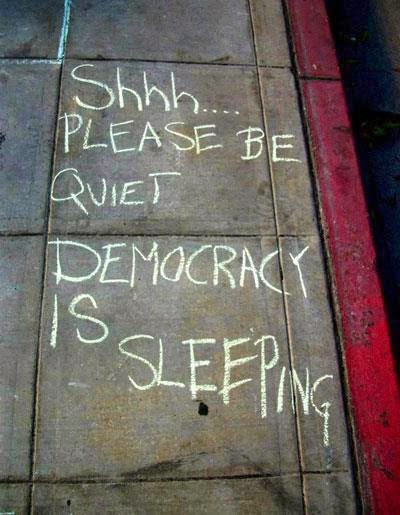 Shhh....
PLEASE BE
QUIET
DEMOCRACY
IS
SLEEPING